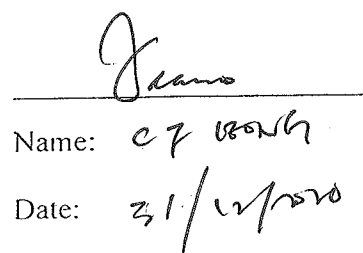 Name: CF LEONG
Date: 31/12/2020